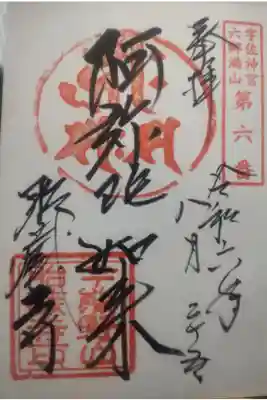 宇佐神宮
六郷満山
第六番
奉拝
令和六年
八月二十五
阿弥陀如来
胎蔵寺